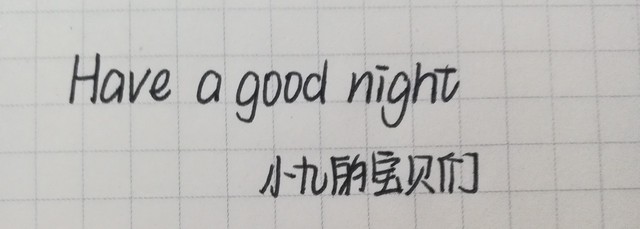 Have a good night
小九的宝贝们